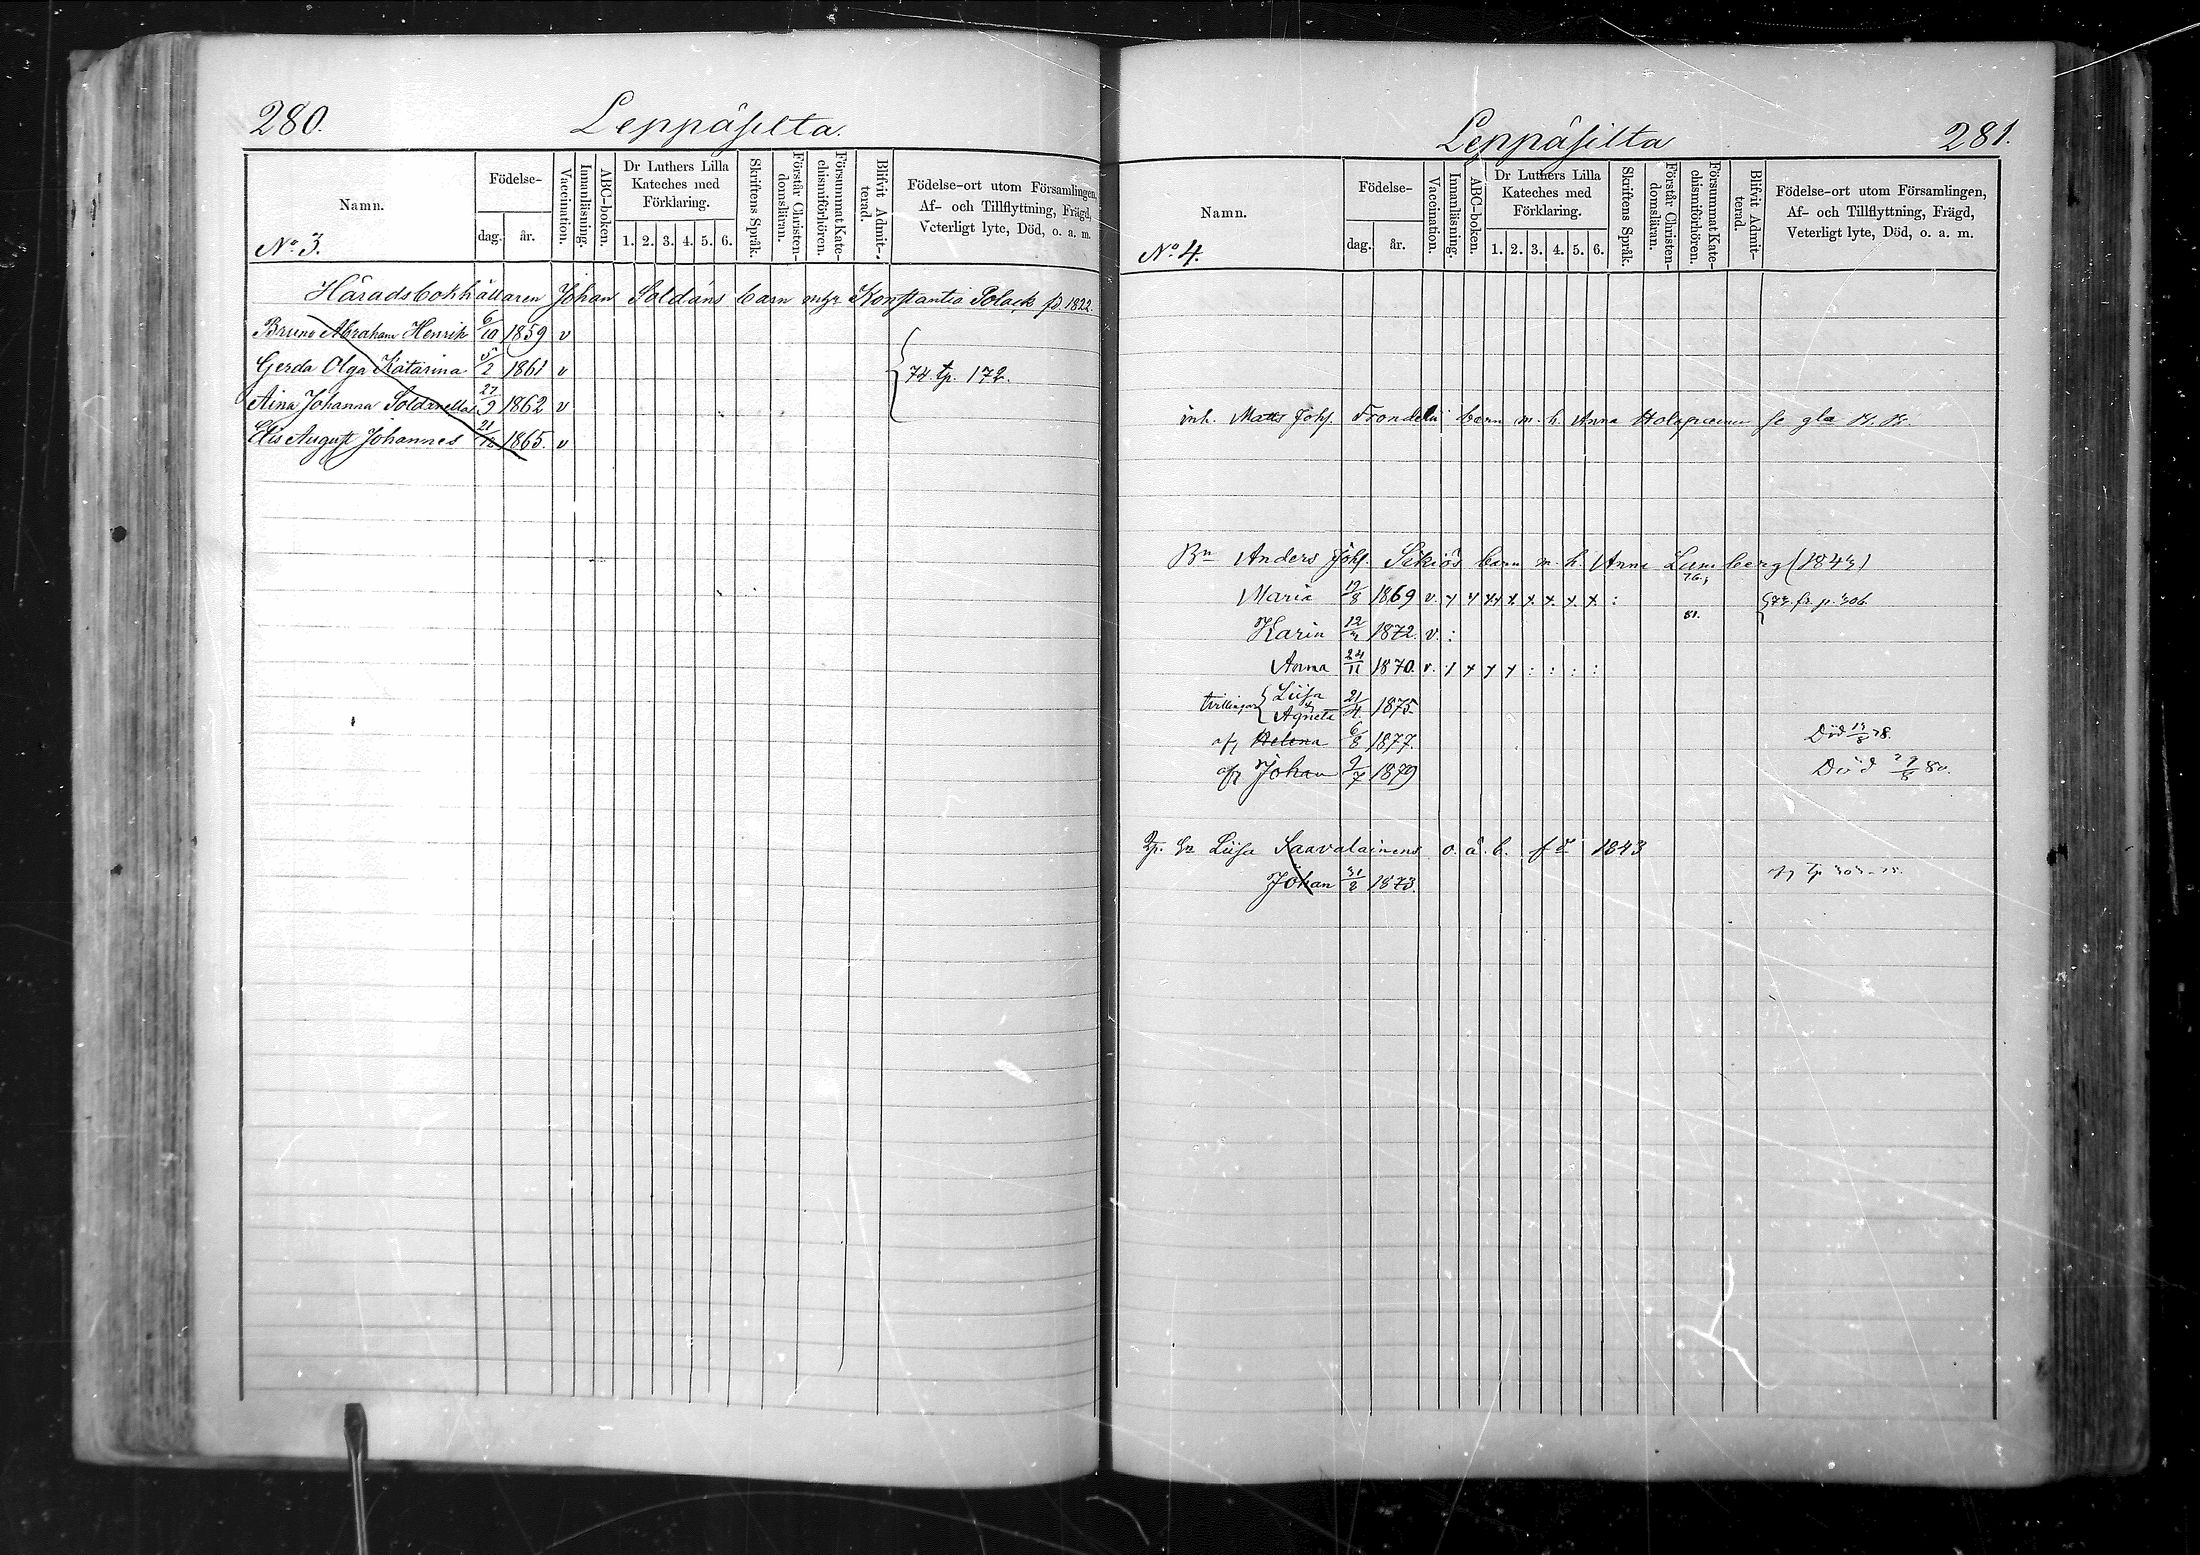 280. Leppäsilta.
Namn. Födelse- dag. år. Vaccination. Innanläsning. ABC-boken. Dr Luthers Lilla Kateches med Förklaring. 1. 2. 3. 4. 5. 6. Skriftens Språk. Förstår Christendomsläran. Försummat Katechismiförhören. Blifvit Admitterad. Födelse-ort utom Församlingen, Af- och Tillflyttning, Frägd, Veterligt lyte, Död, o. a. m.
No 3.
Häradsbokhållaren Johan Soldáns barn Konstantia Polack 1822.
Bruno Abraham Henrik 6/10 1859 v
Gerda Olga Katarina 5/2 1861 v 74 tp. 172.
Aina Johanna Soldanella 27/9 1862 v
Elis August Johannes 21/12 1865. v
Leppäsilta 281.
Namn. Födelse- dag. år. Vaccination. Innanläsning. ABC-boken. Dr Luthers Lilla Kateches med Förklaring. 1. 2. 3. 4. 5. 6. Skriftens Språk. Förstår Christendomsläran. Försummat Katechismiförhören. Blifvit Admitterad. Födelse-ort utom Församlingen, Af- och Tillflyttning, Frägd, Veterligt lyte, Död, o. a. m.
No 4.
inh. Matts Johs. barn m. h. Anna se gla
Bn Anders Johs. barn m. h. Anna
Maria 12/8 1869 v.
Karin 1872. v.
Anna 24/11 1870. v.
tvillingar Liisa Agneta 21/4 1875.
Helena 6/8 1877. Död
Johan 9/7 1879 Död 80.
Liisa Saavalainens o. ä. b. 1843
Johan 31/8 1873.